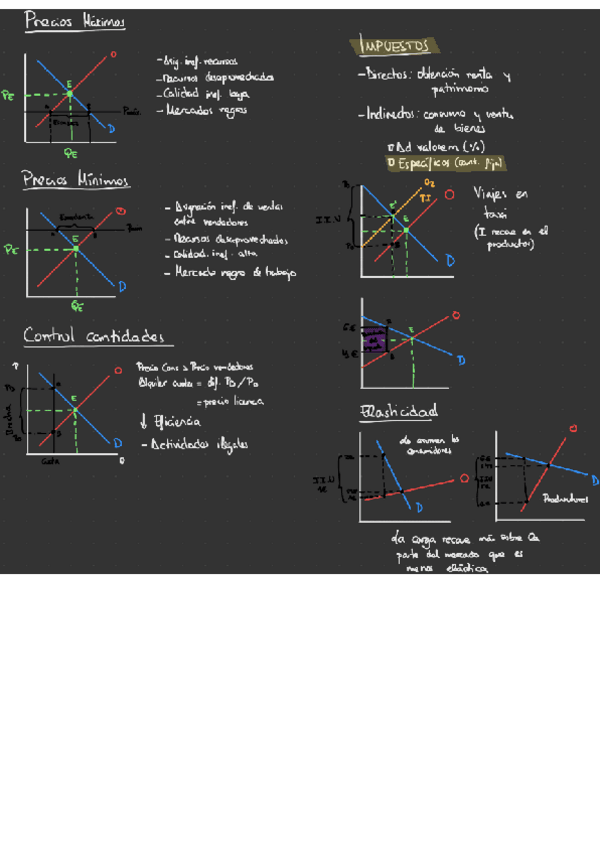 Precios Máximos
O
PE
E
D
QE
- Asig. inef. recursos
- Recursos desaprovechados
- Calidad inef. baja
- Mercados negros
Precios Mínimos
Excedente
O
PE
E
D
QE
- Asignación inef. de ventas
entre vendedores
- Recursos desaprovechados
- Calidad. inef. alta
- Mercado negro de trabajo
Control cantidades
P
O
E
D
Q
Precio Cons ≥ Precio vendedores
Alquiler cuota = dif. PD/PO
= precio licencia
↓ Eficiencia
- Actividades ilegales
IMPUESTOS
- Directos: obtención renta y
patrimonio
- Indirectos: consumo y venta
de bienes
Ad valorem (%)
Específicos (cant. fija)
O2
O
E'
E
D
Viajes en
taxi
(I recae en el
productor)
O
E
D
Elasticidad
Lo asumen los
consumidores
O
D
O
D
Productores
La carga recae más sobre la
parte del mercado que es
menos elástica